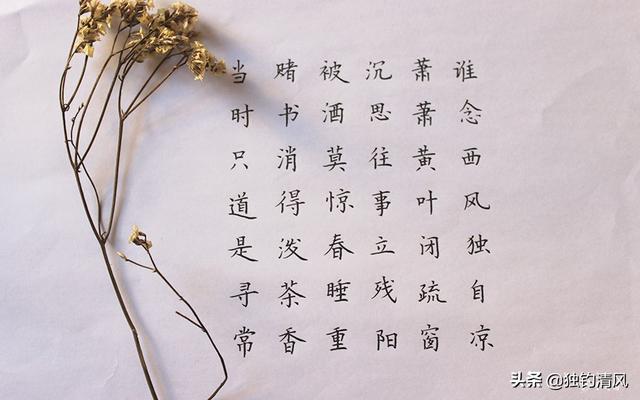 谁念西风独自凉
萧萧黄叶闭疏窗
沉思往事立残阳
被酒莫惊春睡重
赌书消得泼茶香
当时只道是寻常
头条 @独钓清风